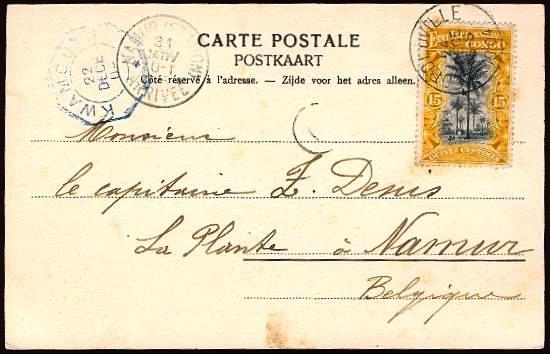 CARTE POSTALE
POSTKAART
Côté réservé à l'adresse. — Zijde voor het adres alleen.
KWAMOUTH
22
DECE
NAMUR
31
JANV
ARRIVEE
VILLE
ETAT INDÉPENDANT DU
CONGO
15 15
QUINZE CENTIMES
Monsieur
le capitaine Z. Denis
La Plante à Namur
Belgique